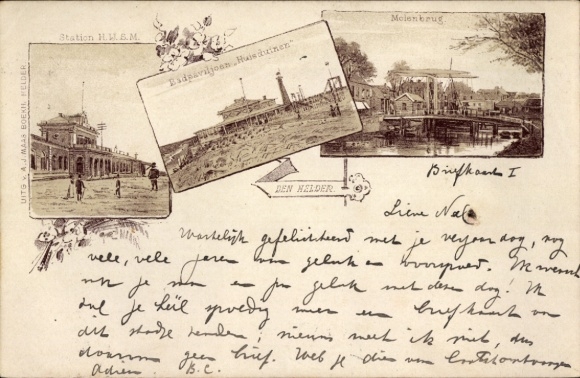 Station H.IJ.S.M.
Badpaviljoen „Huisduinen"
Molenbrug
UITG. v. A.J. MAAS BOEKH. HELDER
DEN HELDER.
Briefkaart I
Lieve
Hartelijk gefeliciteerd met je verjaardag, nog
vele, vele jaren van geluk en voorspoed. Ik wensch
ook je man en geluk met deze dag! Ik
zal je heil spoedig meer een briefkaart van
dit stadje zenden; nieuws weet ik niet, dus
daarom geen brief. Heb je die van ontvangen
Adieu B.C.